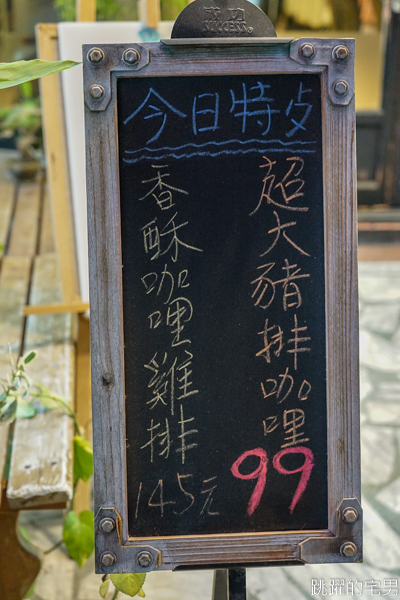 成功
SUCCESS
今日特攴
超大豬排咖哩
99
香酥咖哩雞排
145元
跳躍的宅男